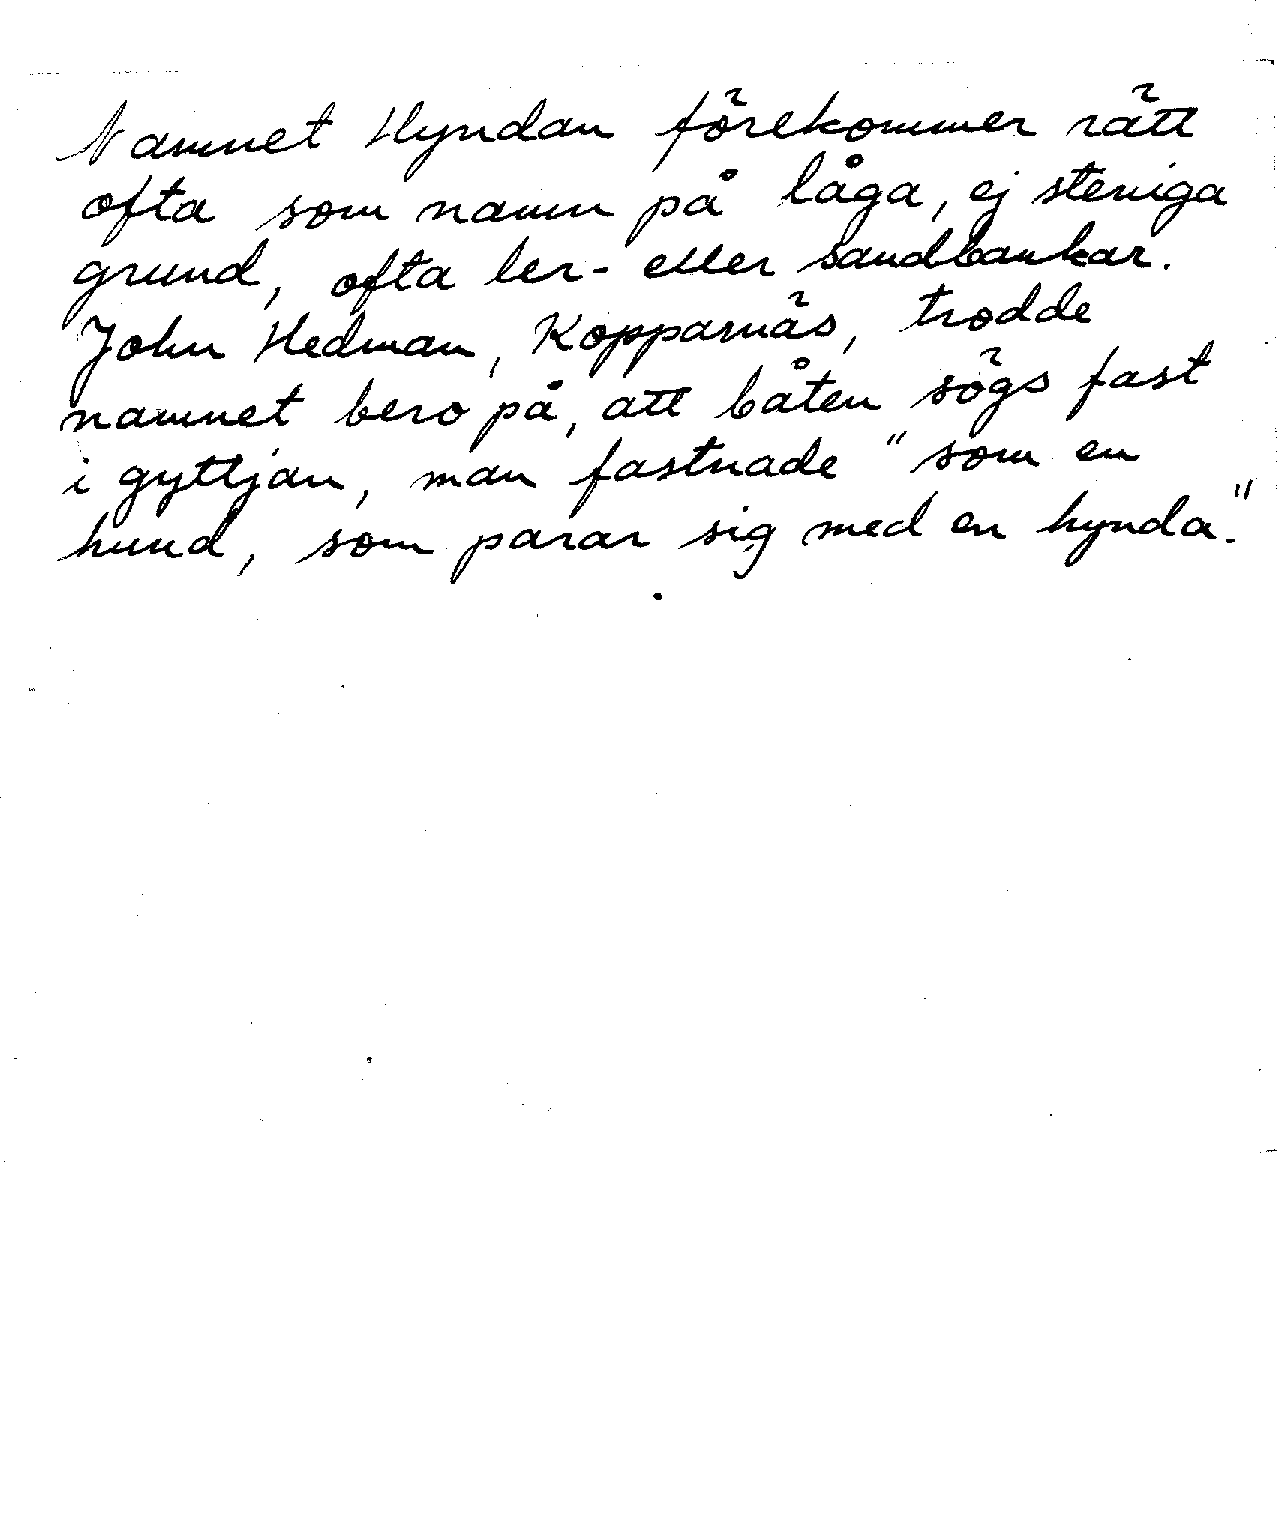 Namnet Hyndan förekommer rätt
ofta som namn på låga, ej steniga
grund, ofta ler- eller sandbankar.
John Hedman, Kopparnäs, trodde
namnet bero på, att båten sögs fast
i gyttjan, man fastnade "som en
hund, som parar sig med en hynda."